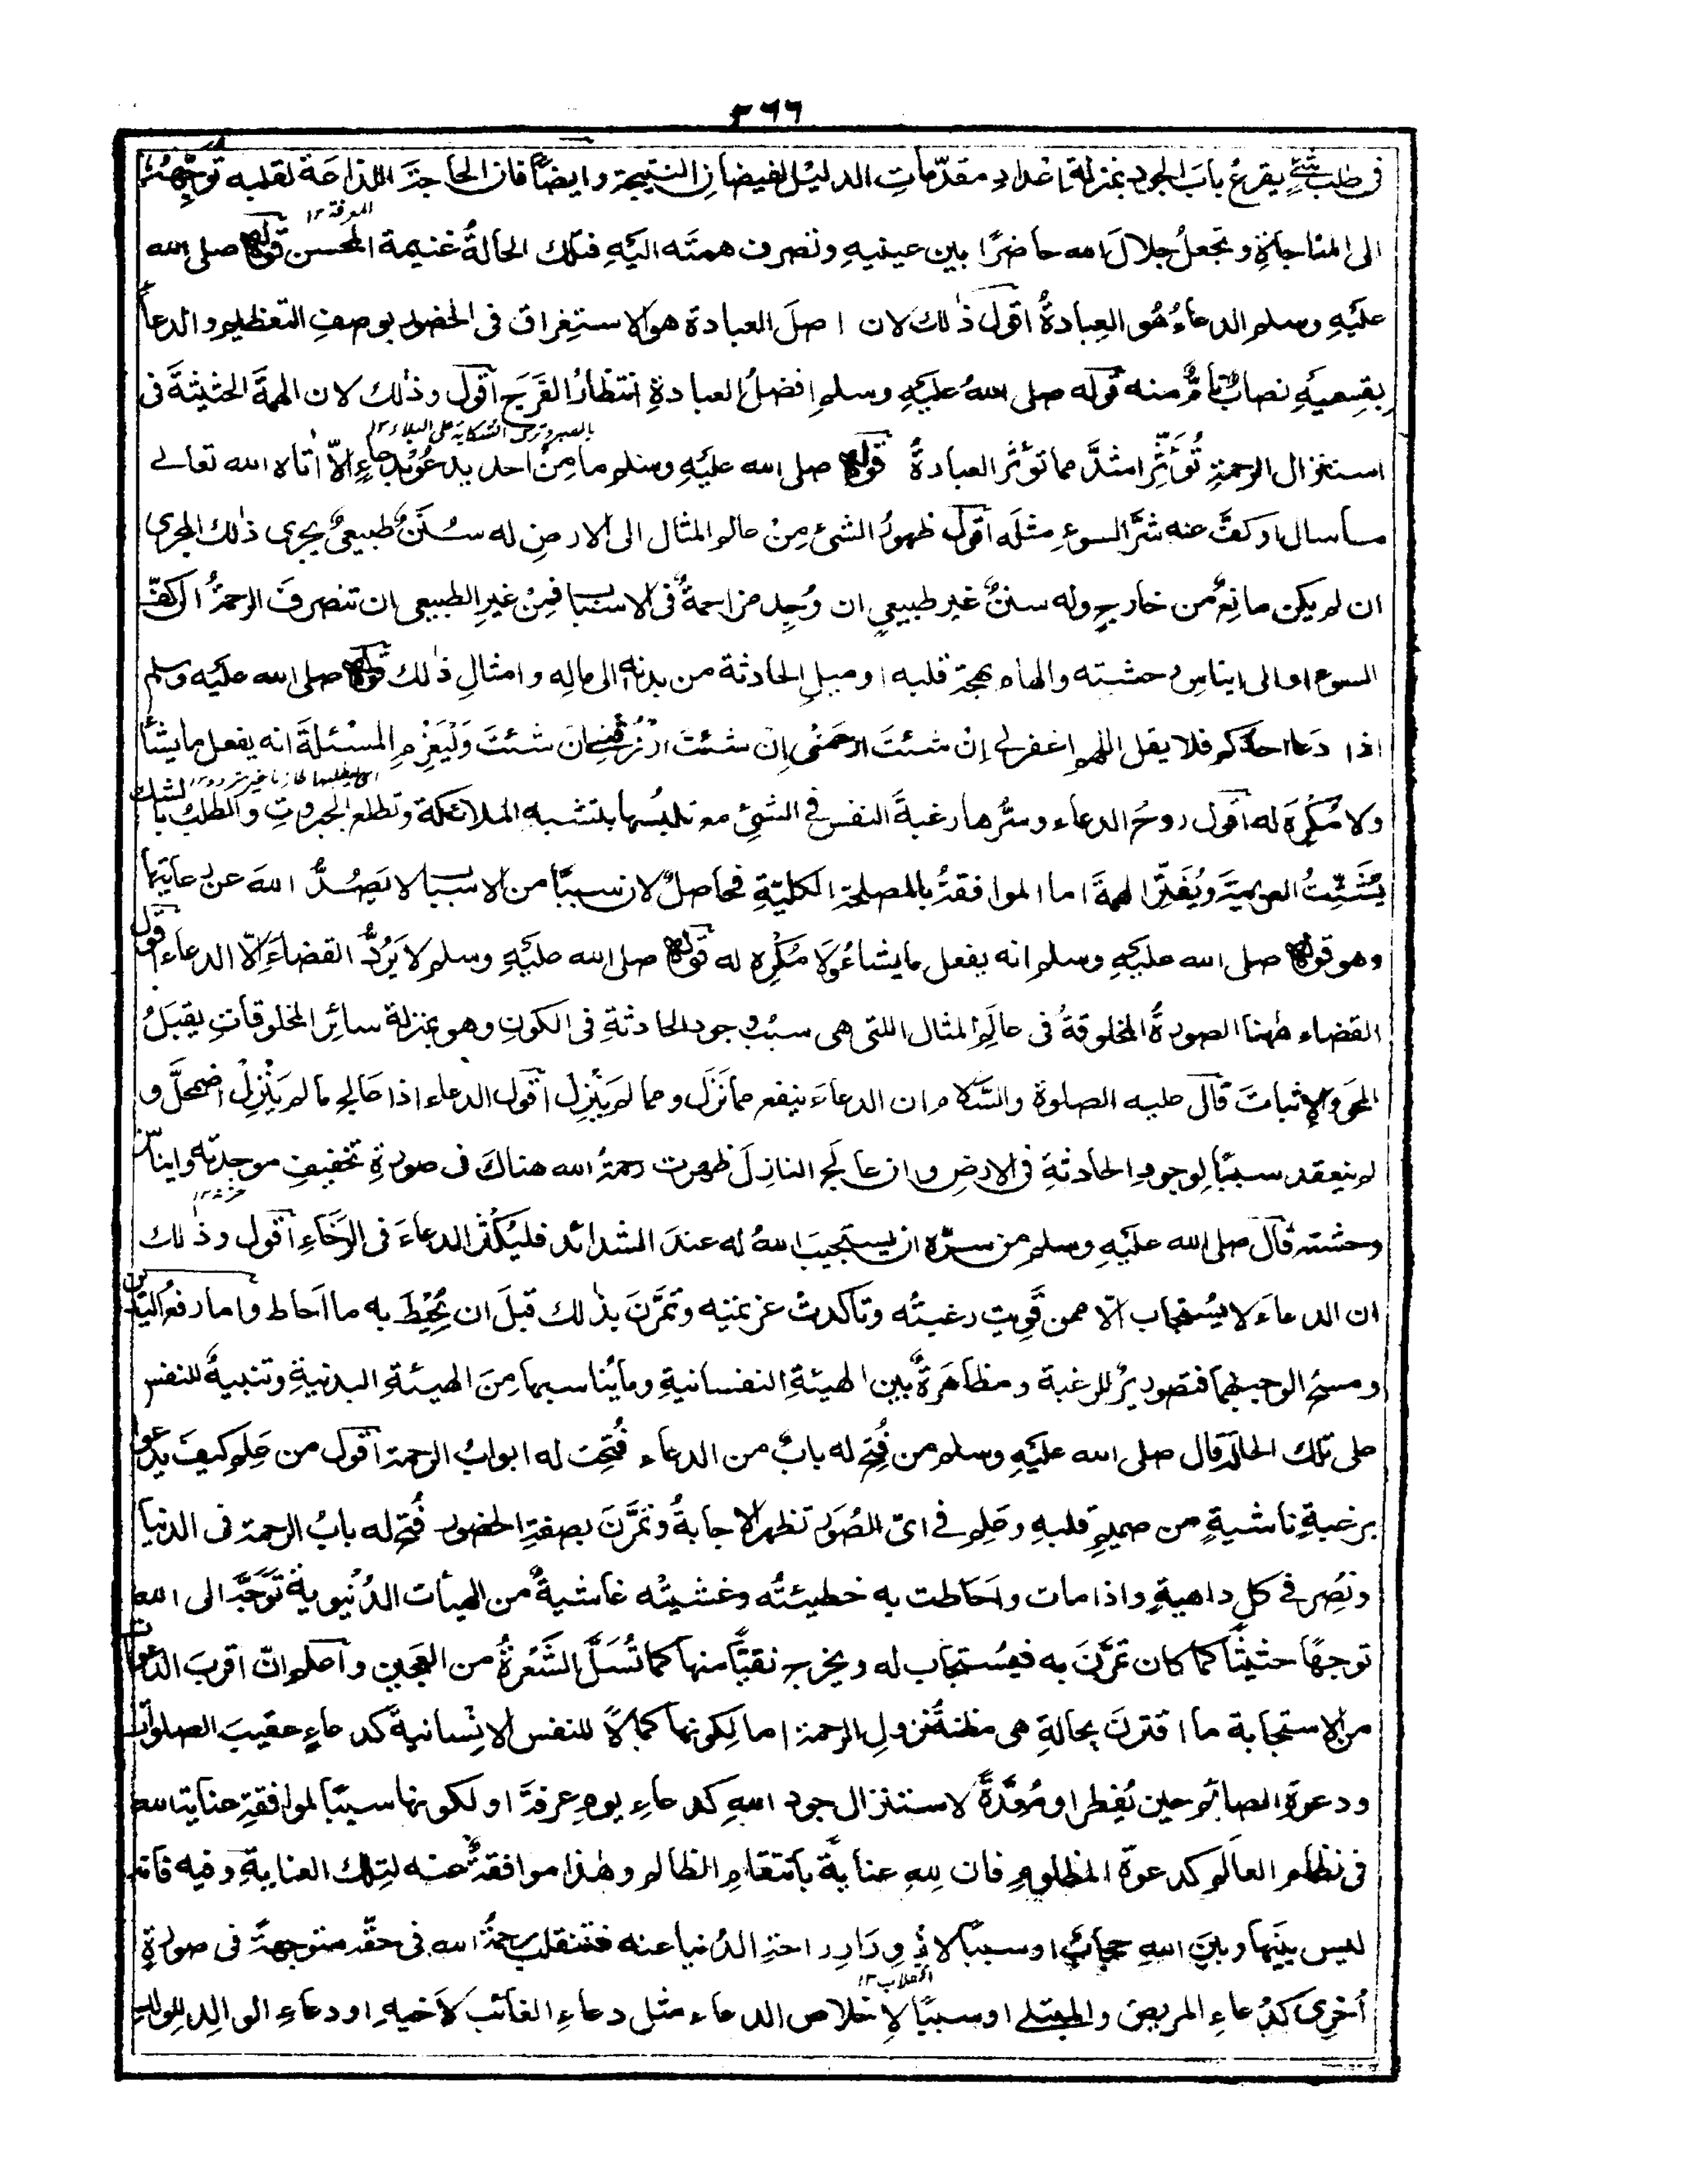 ٣٦٦
فى طلب شئ يقرع باب الجود بمنزلة اعداد مقدّمات الدليل لفيضان النتيجة وايضًا فان الحاجة اللذاعة لقلبه توجّهه
الى المناجاة وتجعل جلال الله حاضرًا بين عينيه وتصرف همته اليه فتلك الحالة غنيمة المحسن قوله صلى الله
عليه وسلم الدعاء هو العبادة اقول ذلك لان اصل العبادة هو الاستغراق فى الحضور بوصف التعظيم والدعاء
بقسميه نصاب تام منه قوله صلى الله عليه وسلم افضل العبادة انتظار الفرج اقول وذلك لان الهمة الحثيثة فى
بالصبر وترك الشكاية على البلاء ١٢
استنزال الرحمة تؤثر اشد مما تؤثر العبادة قوله صلى الله عليه وسلم ما من احد يدعو بدعاء الا اتاه الله تعالى
ما سال او كف عنه شر السوء مثله اقول ظهور الشئ من عالم المثال الى الارض له سنن طبيعى يجرى ذلك المجرى
ان لم يكن مانع من خارج وله سنن غير طبيعى ان وجد مزاحمة فى الاسباب فمن غير الطبيعى ان تنصرف الرحمة الى كف
السوء او الى ايناس وحشته والهام بهجة قلبه او ميل الحادثة من بدنه الى ماله وامثال ذلك قوله صلى الله عليه وسلم
اذا دعا احدكم فلا يقل اللهم اغفر لى ان شئت ارحمنى ان شئت ارزقنى ان شئت وليعزم المسئلة انه يفعل ما يشاء
ولا مكره له اقول روح الدعاء وسرها رغبة النفس فى الشئ مع تلبسها بتشبه الملائكة وتطلع الجبروت والطلب بالشك
يشتت العزيمة ويفتر الهمة اما الموافقة بالمصلحة الكلية فحاصل لان سببًا من الاسباب لا يصدّ الله عن رعايتها
وهو قوله صلى الله عليه وسلم انه يفعل ما يشاء ولا مكره له قوله صلى الله عليه وسلم لا يردّ القضاء الّا الدعاء اقول
القضاء ههنا الصورة المخلوقة فى عالم المثال اللتى هى سبب وجود الحادثة فى الكون وهو بمنزلة سائر المخلوقات يقبل
المحو والاثبات قال عليه الصلوة والسلام ان الدعاء ينفع مما نزل ومما لم ينزل اقول الدعاء اذا عالج ما لم ينزل اضمحل و
لم ينعقد سببًا لوجود الحادثة فى الارض وان عالج النازل ظهرت رحمة الله هناك فى صورة تخفيف موجدته وايناس
وحشته قال صلى الله عليه وسلم من سره ان يستجيب الله له عند الشدائد فليكثر الدعاء فى الرخاء اقول وذلك
ان الدعاء لا يستجاب الا ممن قويت رغبته وتاكدت عزيمته وتمرن بذلك قبل ان يحيط به ما احاط واما رفع اليدين
ومسح الوجه بهما فتصوير للرغبة ومظاهرة بين الهيئة النفسانية وما يناسبها من الهيئة البدنية وتنبيه للنفس
على تلك الحالة قال صلى الله عليه وسلم من فتح له باب من الدعاء فتحت له ابواب الرحمة اقول من علم كيف يدعو
برغبة ناشية من صميم قلبه وعلم فى اى الصور تظهر الاجابة وتمرن بصفة الحضور فتح له باب الرحمة فى الدنيا
ونصر فى كل داهية واذا مات واحاطت به خطيئته وغشيته غاشية من الهيأت الدنيوية توجه الى الله
توجهًا حثيثًا كما كان تمرن به فيستجاب له ويخرج نقيًّا منها كما تسل الشعرة من العجين واعلم ان اقرب الدعوات
من الاستجابة ما اقترن بحالة هى مظنة نزول الرحمة اما لكونها كمالًا للنفس الانسانية كدعاء عقيب الصلوات
ودعوة الصائم حين يفطر او معدة لاستنزال جود الله كدعاء يوم عرفة او لكونها سببًا لموافقة عناية الله
فى نظام العالم كدعوة المظلوم فان لله عناية بانتقام الظالم وهذا موافقة منه لتلك العناية وفيه فانه
ليس بينها وبين الله حجاب او سببًا لازورار راحة الدنيا عنه فتنقلب رحمة الله فى حقه متوجهة فى صورة
اخرى كدعاء المريض والمبتلى او سببًا لاخلاص الدعاء مثل دعاء الغائب لاخيه او دعاء الوالد للولد